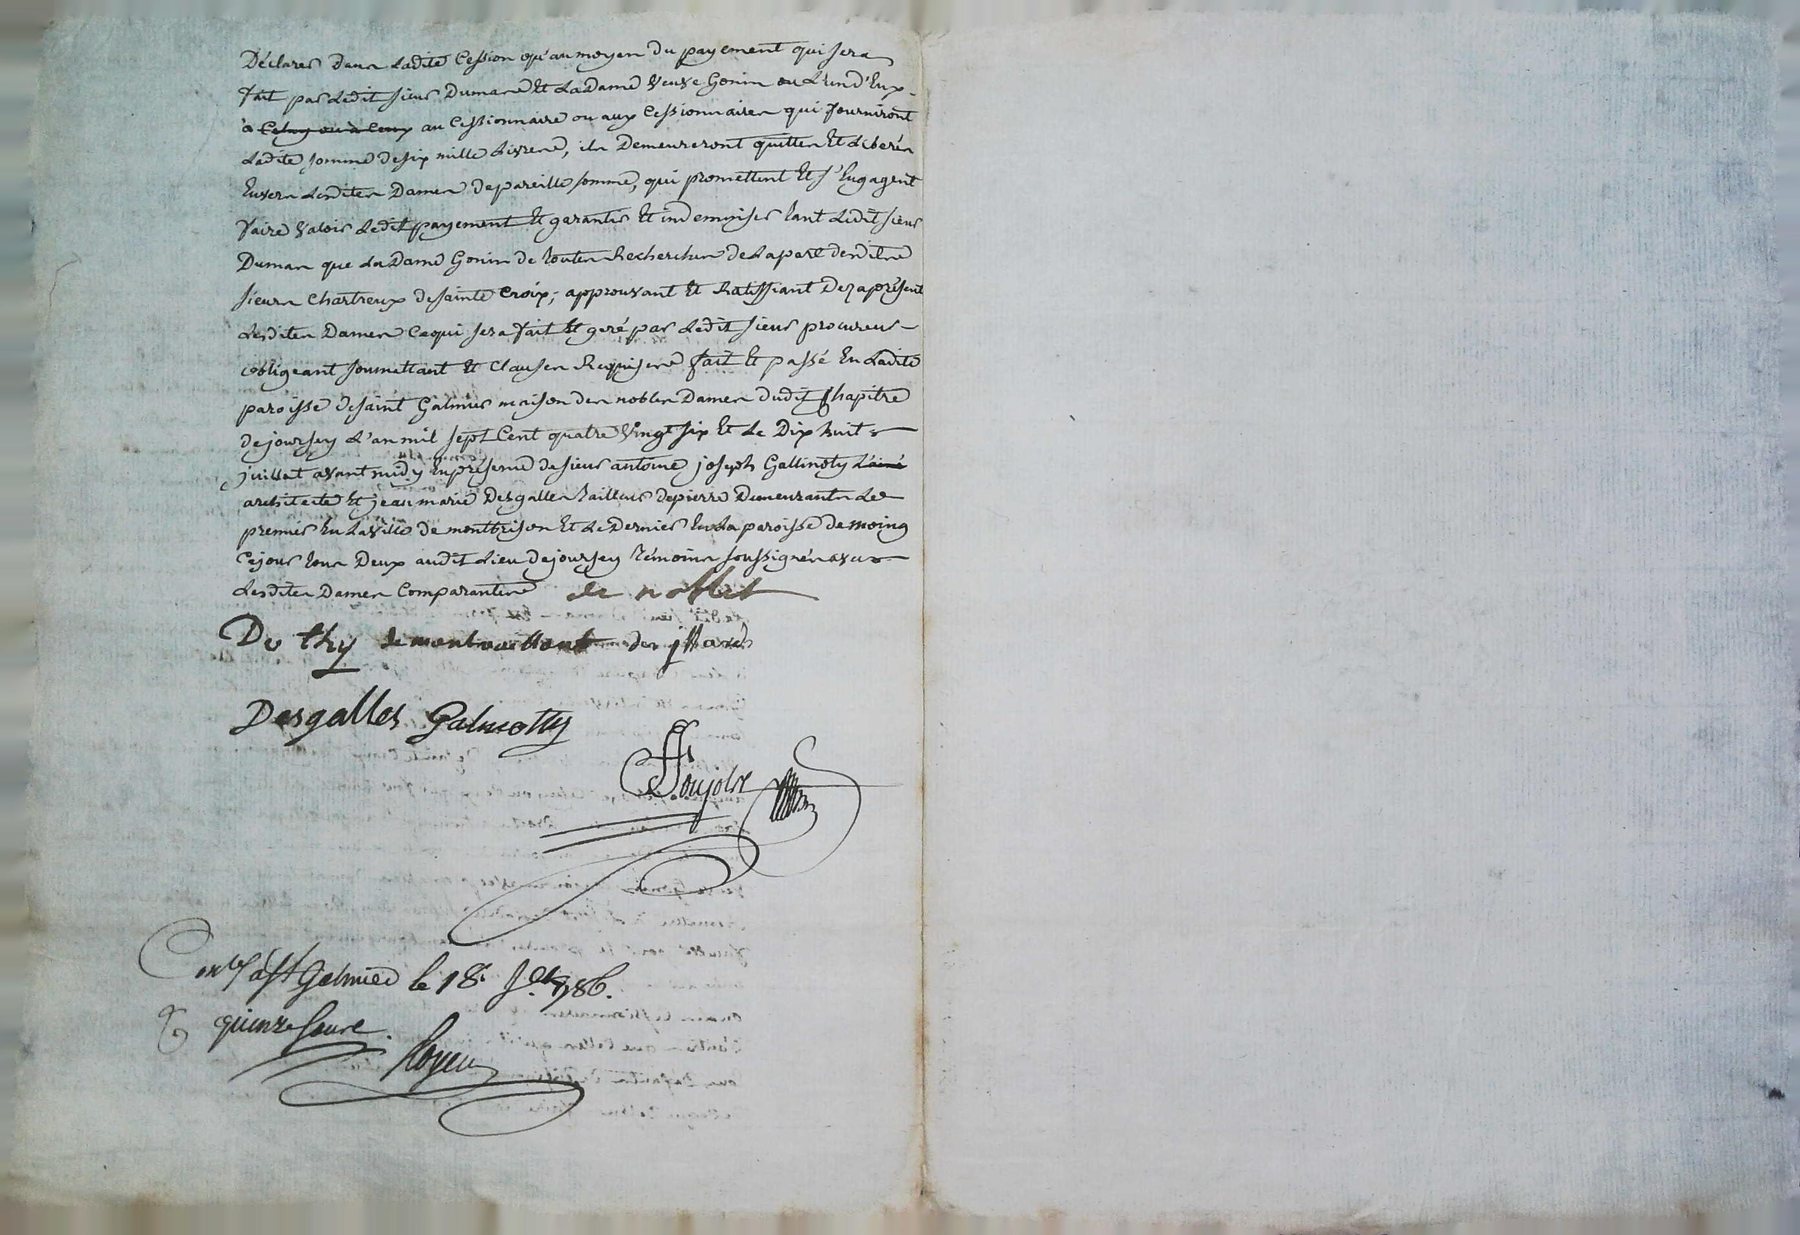 Déclarer dans Ladite Cession qu'au moyen du payement qui sera
fait par Ledit sieur Dumas Et La Dame Veuve Gonin ou L'un d'Eux
à Celuy ou à Ceux au Cessionnaire ou aux Cessionnaires qui fourniront
Ladite somme de six mille Livres, ils Demeureront quittes Et Liberés
Envers Lesdites Dames de pareille somme, qui promettent Et s'Engagent
faire Valoir Ledit payement Et garantir Et indemniser tant Ledit sieur
Dumas que La Dame Gonin de toutes Recherches de La part desdits
sieurs Chartreux de sainte Croix; approuvant Et Ratiffiant Des aprésent
Lesdites Dames Ce qui sera fait Et geré par Ledit sieur procureur
obligeant soumettant Et Clauses Requises fait Et passé En Ladite
paroisse de saint Galmier maison des nobles Dames dudit Chapitre
de joursey L'an mil sept Cent quatre Vingt six Et Le Dix huit
juillet avant midy En présence de sieur antoine joseph Galinoty L'ainé
architecte Et jean marie Desgalles tailleur de pierre Demeurants Le
premier En La Ville de montbrison Et Le Dernier En La paroisse de moing
Ce jour tous Deux audit Lieu de joursey témoins soussignés avec
Lesdites Dames Comparantes de
De thy
Desgalles Galinotty
Poujolx
à st Galmier le 18 1786.
quinze sous.
Royer